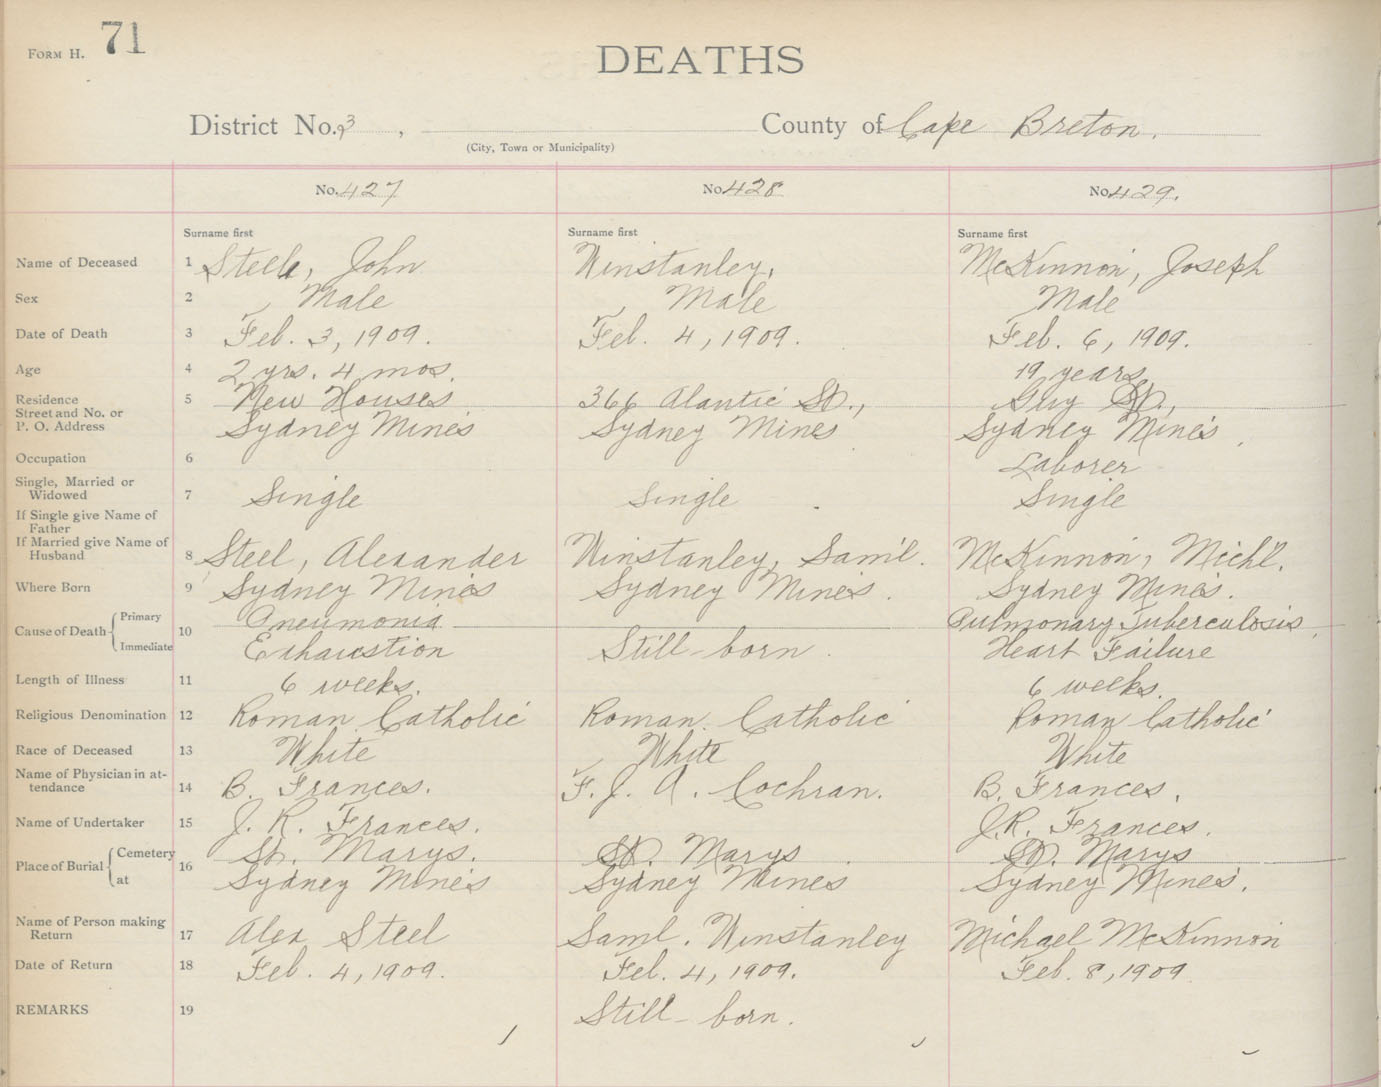 FORM H. 71
DEATHS
District No. 23, County of Cape Breton.
(City, Town or Municipality)
No. 427 No. 428 No. 429.
Surname first Surname first Surname first
Name of Deceased 1 Steele, John Winstanley, McKinnon, Joseph
Sex 2 Male Male Male
Date of Death 3 Feb. 3, 1909. Feb. 4, 1909. Feb. 6, 1909.
Age 4 2 yrs. 4 mos. 19 years
Residence 5 New Houses 366 Alantic St., Guy St.,
Street and No. or
P. O. Address Sydney Mines Sydney Mines Sydney Mines.
Occupation 6 Laborer
Single, Married or
Widowed 7 Single Single Single
If Single give Name of
Father
If Married give Name of
Husband 8 Steel, Alexander Winstanley, Sam'l. McKinnon, Mich'l.
Where Born 9 Sydney Mines Sydney Mines. Sydney Mines.
Cause of Death Primary 10 Pneumonia Pulmonary Tuberculosis,
Immediate Exhaustion Still-born. Heart Failure
Length of Illness 11 6 weeks. 6 weeks.
Religious Denomination 12 Roman Catholic Roman Catholic Roman Catholic
Race of Deceased 13 White White White
Name of Physician in at-
tendance 14 B. Frances. F. J. A. Cochran. B. Frances.
Name of Undertaker 15 J. R. Frances. J.R. Frances.
Place of Burial Cemetery 16 St. Marys. St. Marys St. Marys
at Sydney Mines Sydney Mines Sydney Mines.
Name of Person making
Return 17 Alex Steel Saml. Winstanley Michael McKinnon
Date of Return 18 Feb. 4, 1909. Feb. 4, 1909. Feb. 8, 1909
REMARKS 19 Still-born.